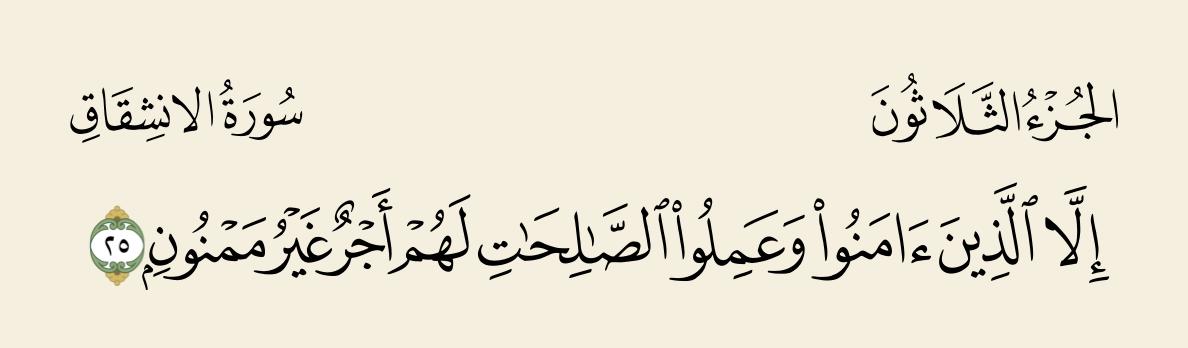 الجُزْءُ الثَّلَاثُونَ
سُورَةُ الانشِقَاقِ
إِلَّا ٱلَّذِينَ ءَامَنُوا۟ وَعَمِلُوا۟ ٱلصَّـٰلِحَـٰتِ لَهُمْ أَجْرٌ غَيْرُ مَمْنُونٍۭ ٢٥